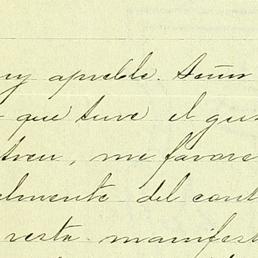 uy apreble. Señor
que tuve el gus
treu, me favore
elmente del cont
resta manifest